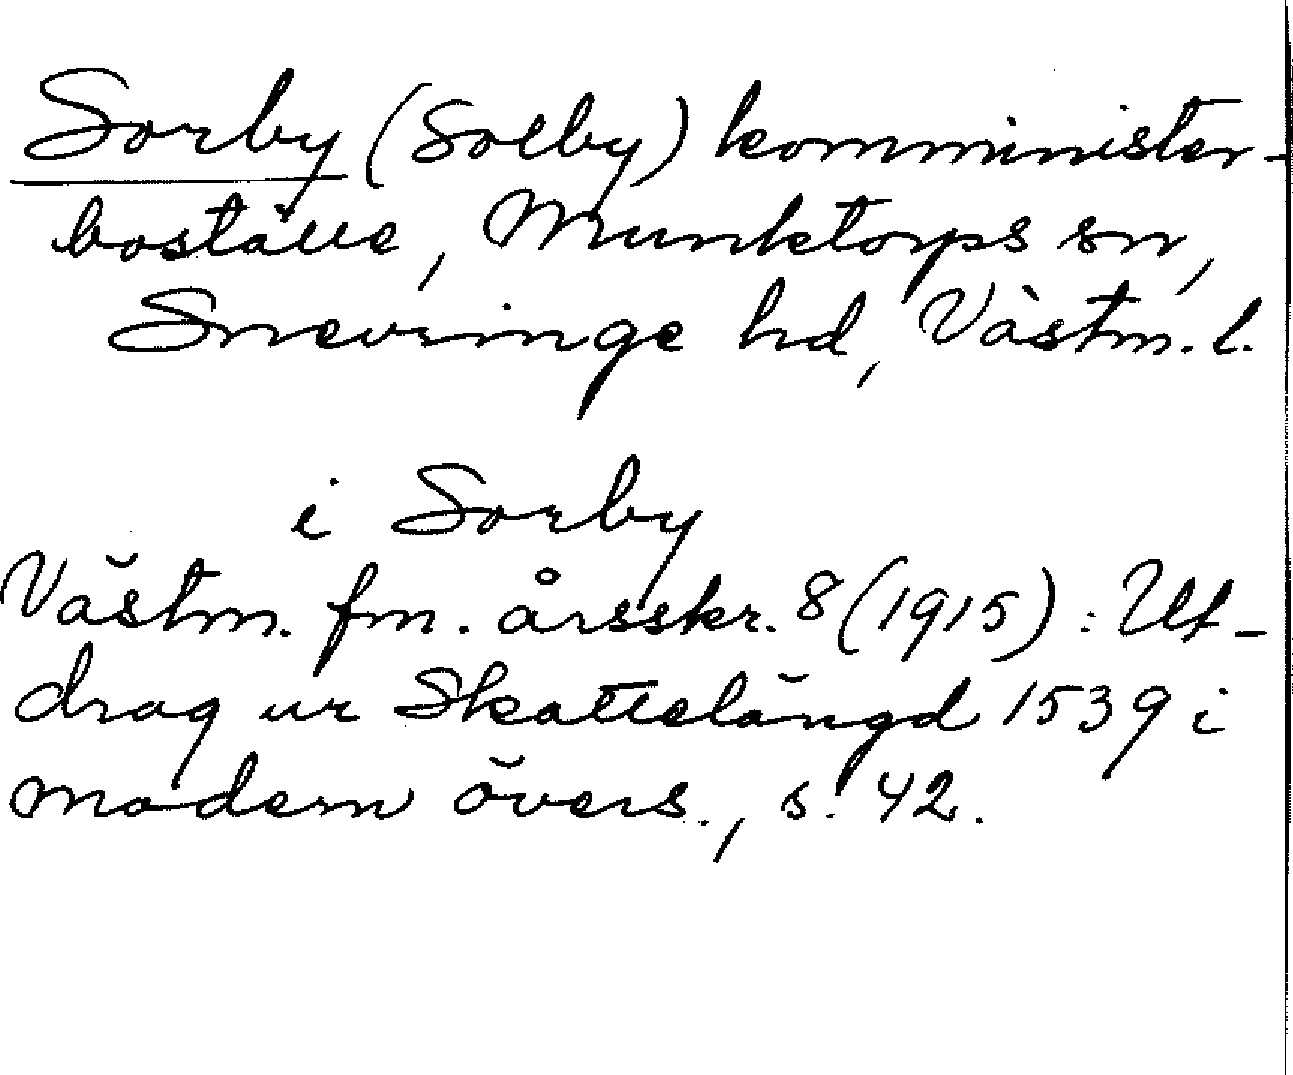 Sorby (Solby) komminister-
boställe, Munktorps sn,
Snevringe hd, Västm. l.
i Sorby
Västm. fm. årsskr. 8 (1915): Ut-
drag ur Skattelängd 1539 i
modern övers., s. 42.